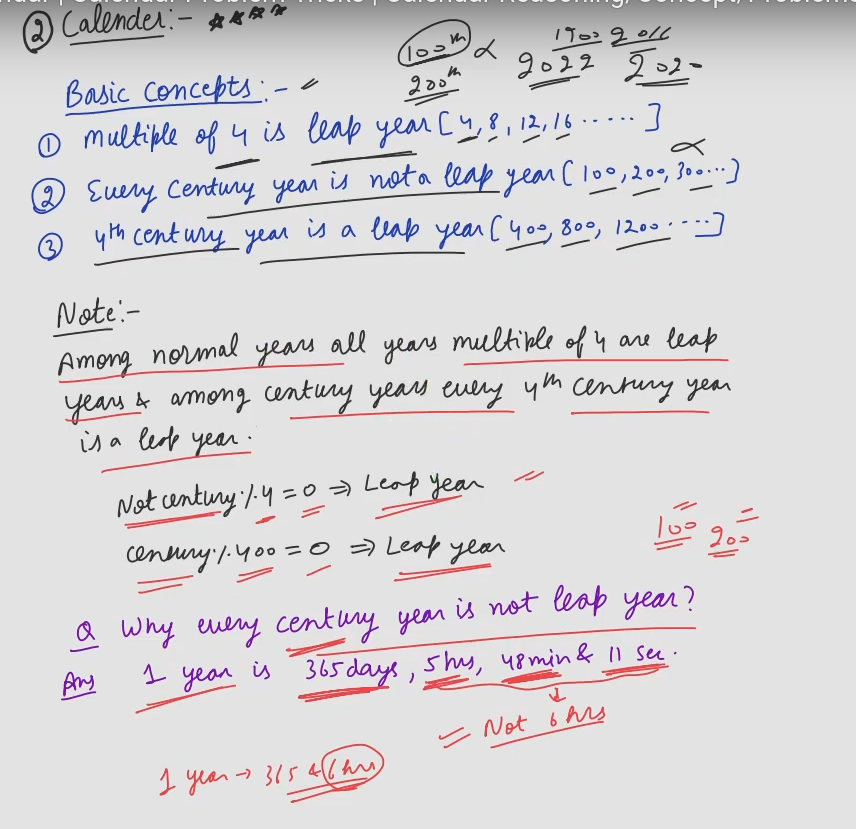 ② Calender:- ★★★★
100th α 1900 2011
200th 2022 2020
Basic Concepts:-
① multiple of 4 is leap year [4, 8, 12, 16 ......]
② Every Century year is not a leap year [100, 200, 300...]
③ 4th century year is a leap year [400, 800, 1200.....]
Note:-
Among normal years all years multiple of 4 are leap
years & among century years every 4th century year
is a leap year.
Not century % 4 = 0 ⇒ Leap year
century % 400 = 0 ⇒ Leap year
100 200
Q Why every century year is not leap year?
Ans 1 year is 365 days, 5 hrs, 48 min & 11 sec.
= Not 6 hrs
1 year → 365 & 6 hrs